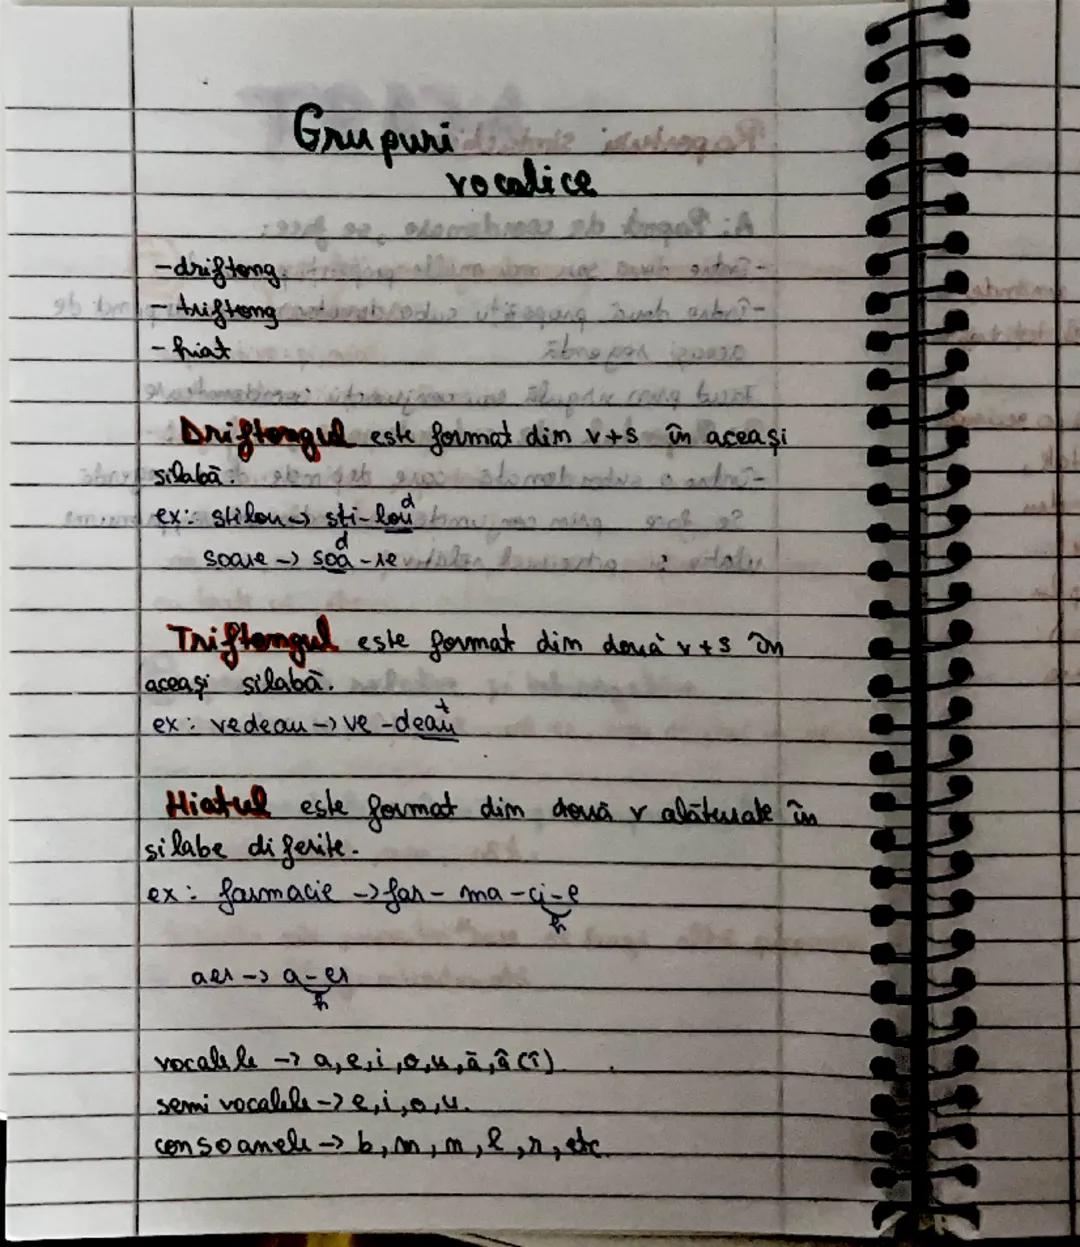 Grupuri
vocalice
-driftong
-triftong
-hiat
Driftongul este format din v+s în aceași
silabă.
ex: stilou -> sti-lou d
soare -> soa-re d
Triftongul este format din două v+s în
aceași silabă.
ex: vedeau -> ve-deau t
Hiatul este format din două v alăturate în
silabe diferite.
ex: farmacie -> far-ma-ci-e
h
aer -> a-er
h
vocalele -> a,e,i,o,u,ă,â(î)
semivocalele -> e,i,o,u.
consoanele -> b,m,n,l,r,etc.